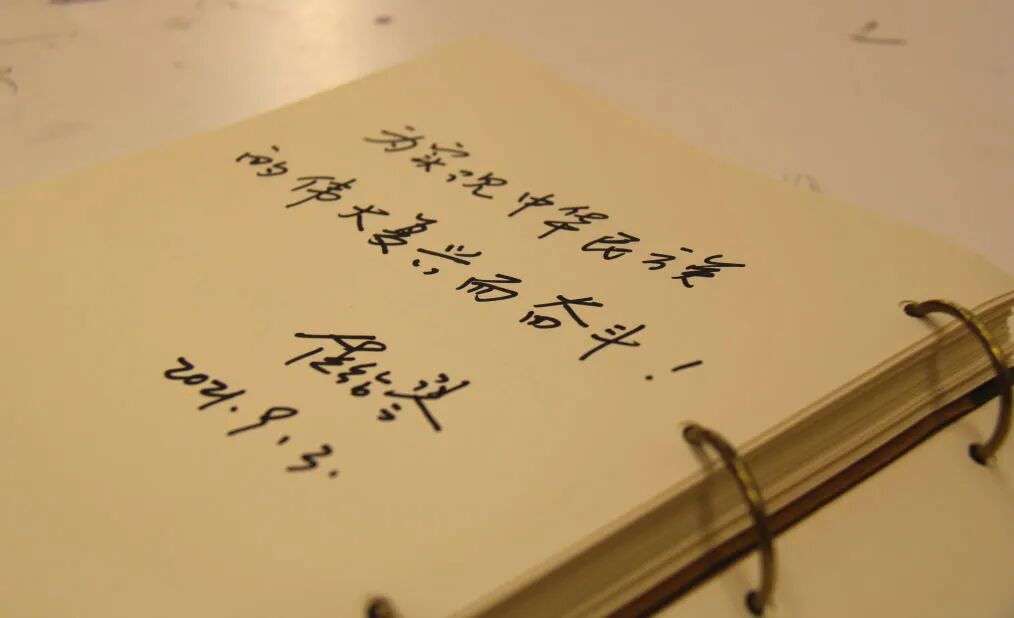 为实现中华民族
的伟大复兴而奋斗!
2021.9.3.